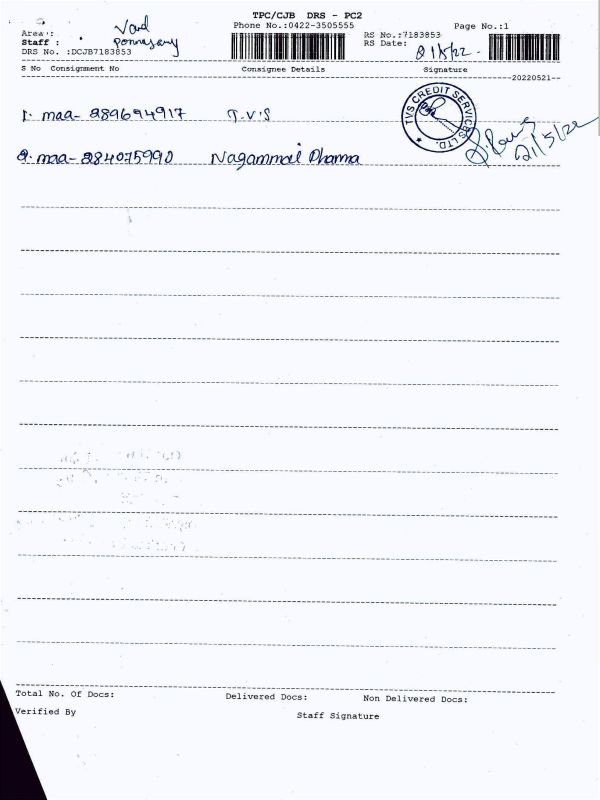 TPC/CJB DRS - PC2
Phone No.:0422-3505555
Page No.:1
Area :
Staff :
DRS No. :DCJB7183853
RS No.:7183853
RS Date: 21/5/22.
S No Consignment No Consignee Details Signature
--20220521--
1. maa- 289694917 T.V.S
TVS CREDIT SERVICES LTD.
21/5/22
2. maa- 284075990 Nagammai Pharma
Total No. Of Docs: Delivered Docs: Non Delivered Docs:
Verified By Staff Signature